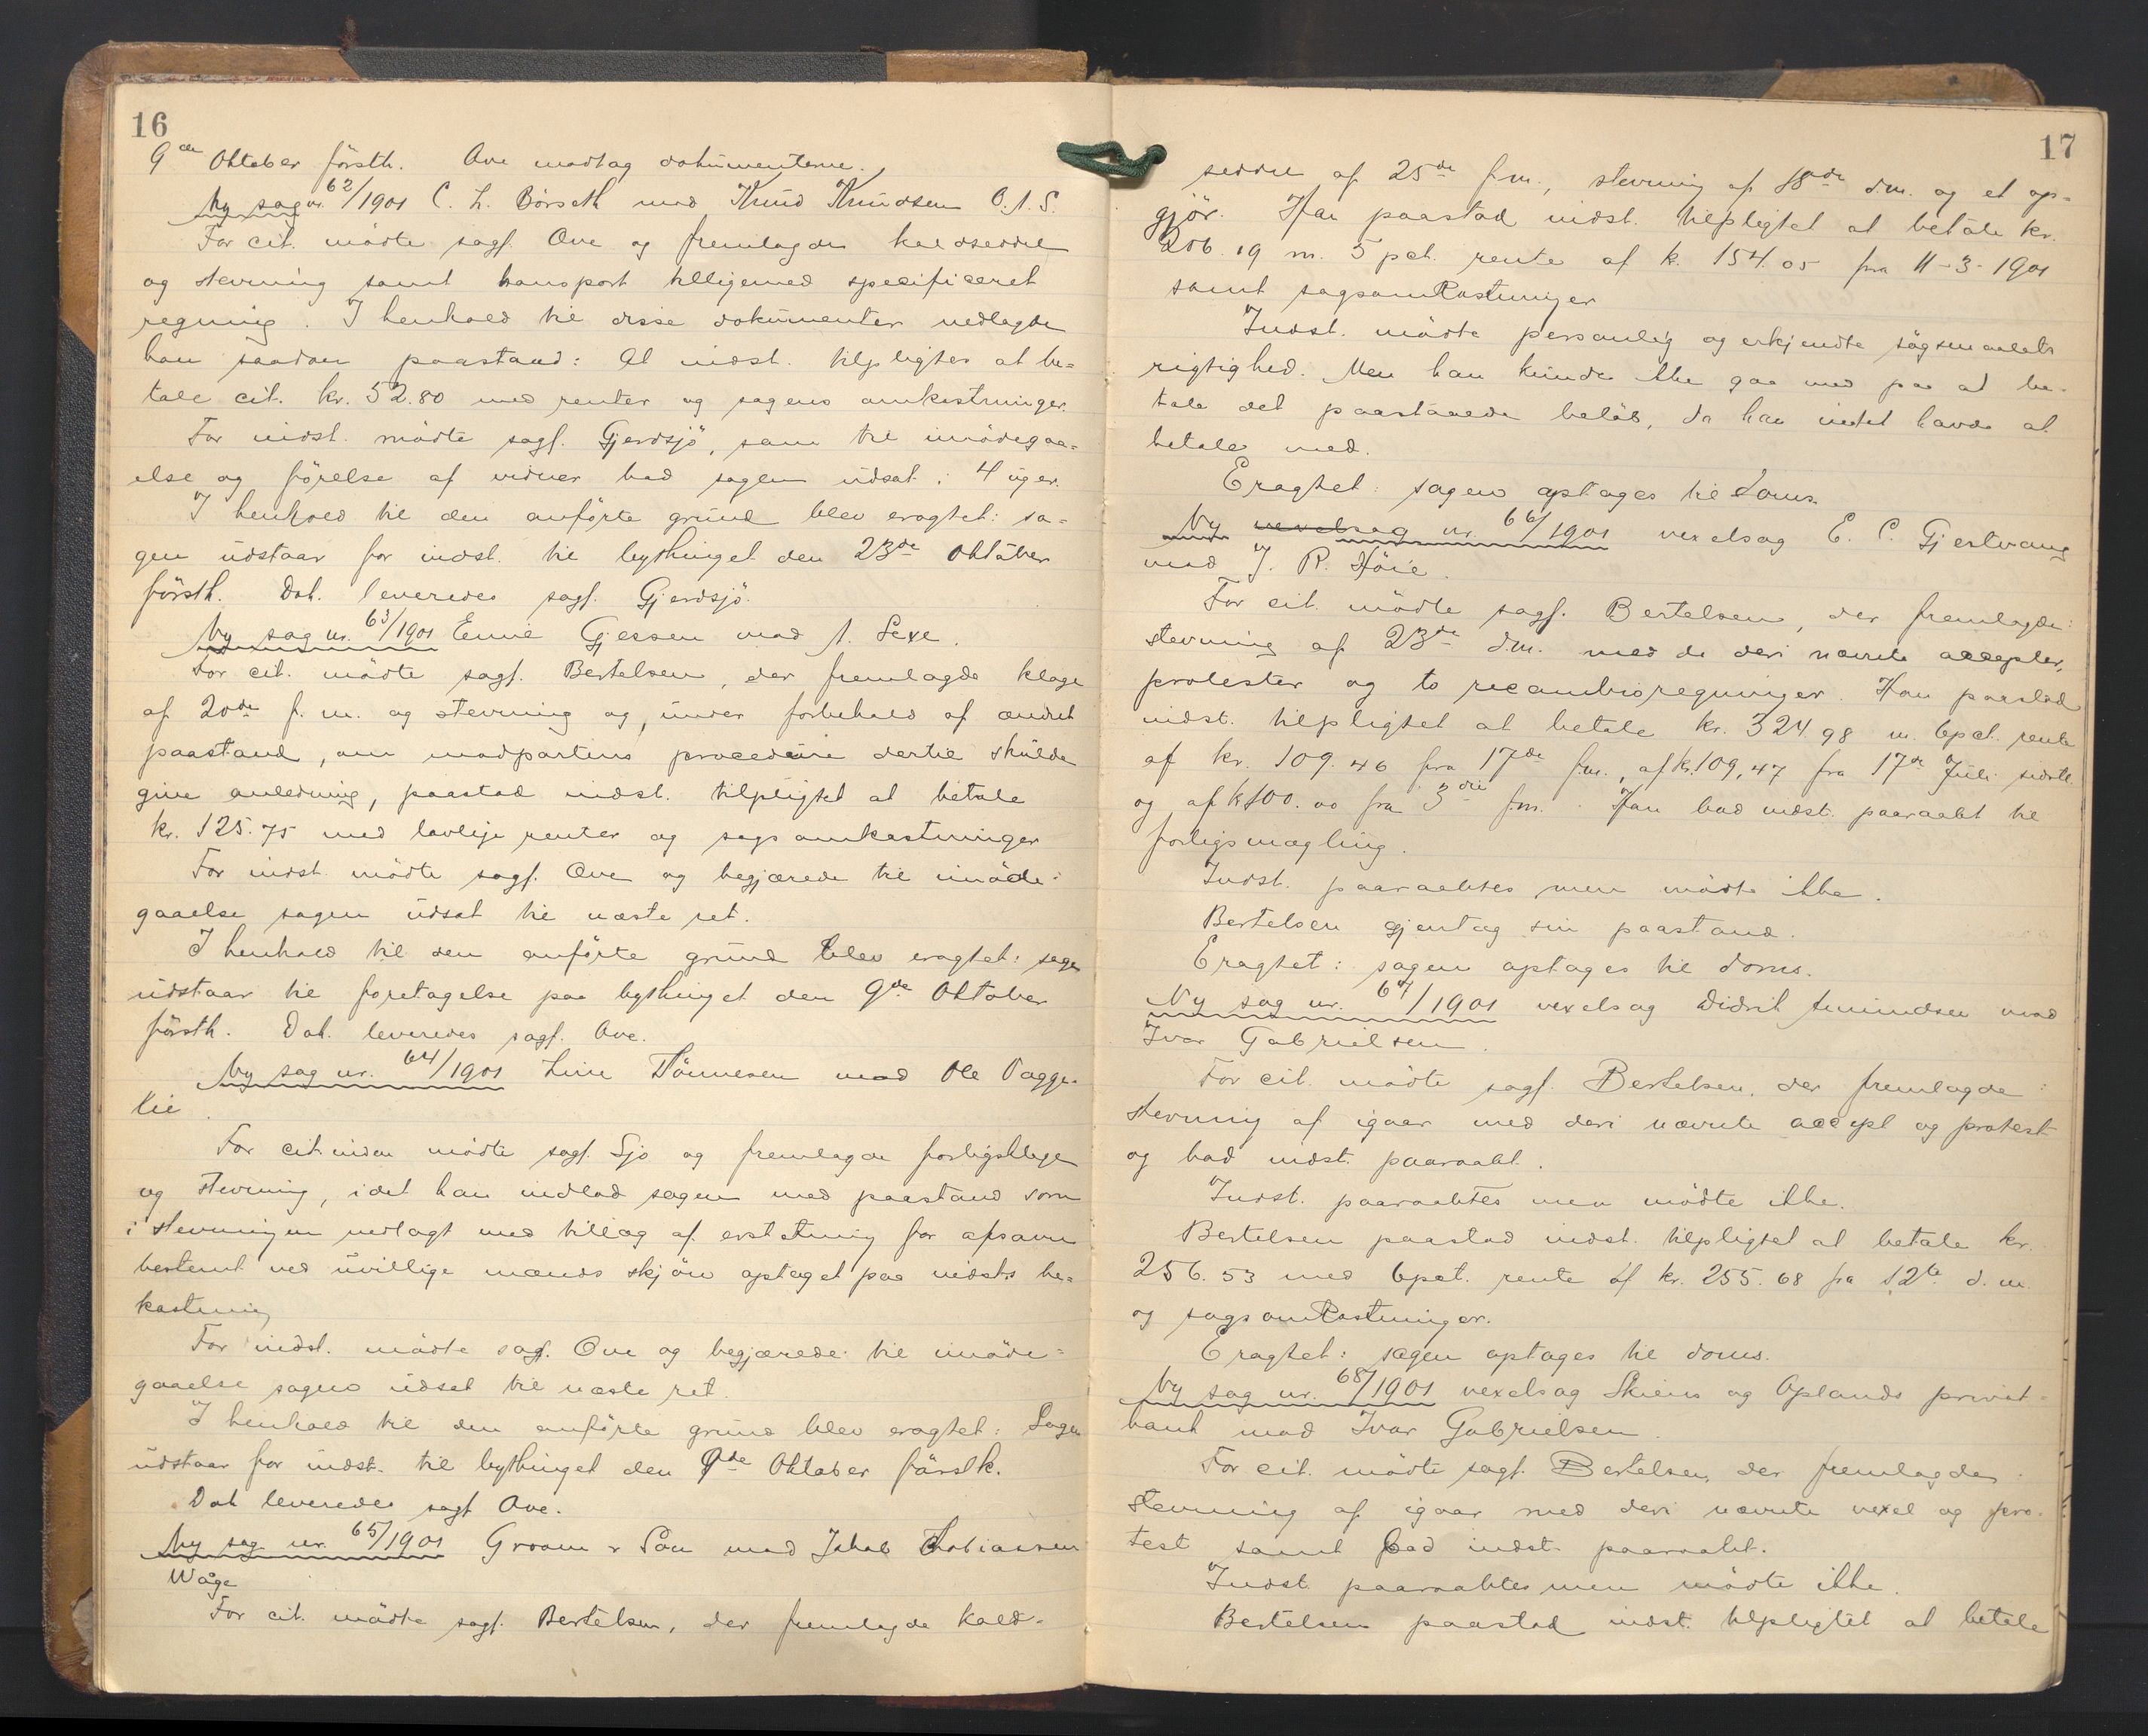 16
9de Oktober förstk. Ove modtog dokumenterne.
Ny sag nr. 62/1901 C. L. Börseth mod Knud Knudsen
For cit. mödte sagf. Ove og fremlagde kaldseddel
og stevning samt transport tilligemed specificeret
regning. I henhold til disse dokumenter nedlagde
han saadan paastand: At indst. tilpligtes at be=
tale cit. kr. 52.80 med renter og sagens omkostninger.
For indst. mödte sagf. Gjerdsjö, som til imödegaa=
else og förelse af vidner bad sagen udsat i 4 uger.
I henhold til den anförte grund blev eragtet: sa=
gen udstaar for indst. til bythinget den 23de Oktober
förstk. Dok. leveredes sagf. Gjerdsjö.
Ny sag nr. 63/1901 Emie Gjessen mod A. Sexe.
For cit. mödte sagf. Bertelsen, der fremlagde klage
af 20de f. m. og stevning og, under forbehold af ændret
paastand, om modpartens procedure dertil skulde
give anledning, paastod indst. tilpligtet at betale
kr. 125.75 med lovlige renter og sagsomkostninger
For indst. mödte sagf. Ove og begjærede til imöde=
gaaelse sagen udsat til næste ret.
I henhold til den anförte grund blev eragtet: sagen
udstaar til foretagelse paa bythinget den 9de Oktober
förstk. Dok. leveredes sagf. Ove.
Ny sag nr. 64/1901 Line Tönnesen mod Ole Vagge=
lie.
For citinden mödte sagf. Sjo og fremlagde forligsklage
og stevning, idet han indlod sagen med paastand som
i stevningen nedlagt med tillæg af erstatning for afsavn
bestemt ved uvillige mænds skjön optaget paa indsts be=
kostning
For indst. mödte sagf. Ove og begjærede til imöde=
gaaelse sagen udsat til næste ret.
I henhold til den anförte grund blev eragtet: Sagen
udstaar for indst. til bythinget den 9de Oktober förstk.
Dok leveredes sagf Ove.
Ny sag nr. 65/1901 Groom & Sön mod Jakob Tobiassen
Wåge
For cit. mödte sagf. Bertelsen, der fremlagde kald-
17
seddel af 25de f.m., stevning af 18de d.m. og et op-
gjör. Han paastod indst. tilpligtet at betale kr.
206.19 m. 5 pct. rente af k. 154.05 fra 11-3-1901
samt sagsomkostninger
Indst. mödte personlig og erkjendte sögsmaalets
rigtighed. Men han kunde ikke gaa med paa at be-
tale det paastaaede belöb, da han intet havde at
betale med.
Eragtet: sagen optages til doms.
Ny vexelsag nr. 66/1901 vexelsag E. C. Gjestvang
mod J. R. Höie.
For cit. mödte sagf. Bertelsen, der fremlagde:
stevning af 23de d.m. med de deri nævnte accepter,
protester og to recambioregninger. Han paastod
indst. tilpligtet at betale kr. 324.98 m. 6pct. rente
af kr. 109.46 fra 17de f.m., af kr. 109,47 fra 17de Juli sidstl
og af k 100.00 fra 3die f.m. Han bad indst. paaraabt til
forligsmægling.
Indst. paaraabtes men mödte ikke.
Bertelsen gjentog sin paastand.
Eragtet: sagen optages til doms.
Ny sag nr. 67/1901 vexelsag Didrik Amundsen mod
Ivar Gabrielsen.
For cit. mödte sagf. Bertelsen, der fremlagde:
stevning af igaar med deri nævnte accept og protest
og bad indst. paaraabt.
Indst. paaraabtes men mödte ikke.
Bertelsen paastod indst. tilpligtet at betale kr.
256.53 med 6pct. rente af kr. 255.68 fra 12te d. m.
og sagsomkostninger.
Eragtet: sagen optages til doms.
Ny sag nr. 68/1901 vexelsag Skiens og Oplands privat-
bank mod Ivar Gabrielsen.
For cit. mödte sagf. Bertelsen, der fremlagde:
stevning af igaar med deri nævnte vexel og pro-
test samt bad indst. paaraabt.
Indst. paaraabtes men mödte ikke.
Bertelsen paastod indst. tilpligtet at betale